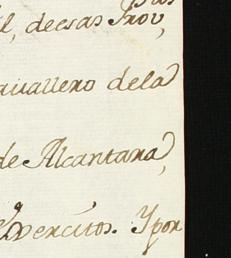 l, deesas Prov,
avallero dela
de Alcantara,
Exercitos. Y por